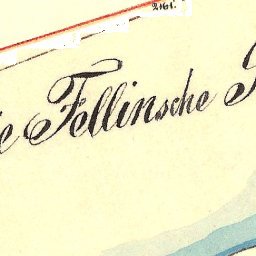 2161.
Fellinsche